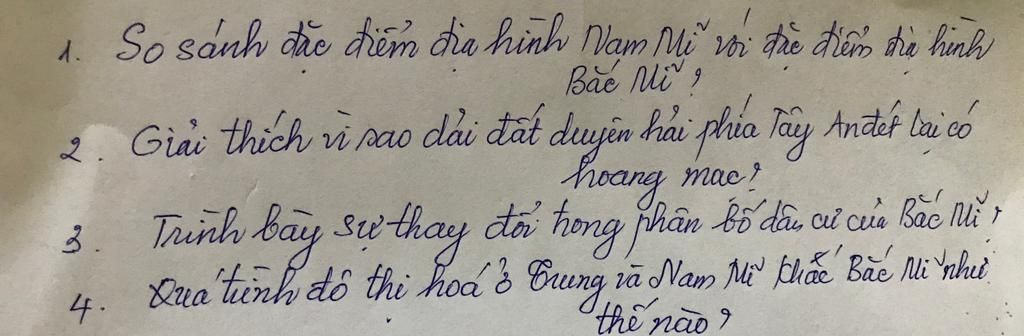 1. So sánh đặc điểm địa hình Nam Mĩ với đặc điểm địa hình
Bắc Mĩ?
2. Giải thích vì sao dải đất duyên hải phía Tây Anđet lại có
hoang mạc?
3. Trình bày sự thay đổi trong phân bố dân cư của Bắc Mĩ?
4. Quá trình đô thị hoá ở Trung và Nam Mĩ khác Bắc Mĩ như
thế nào?